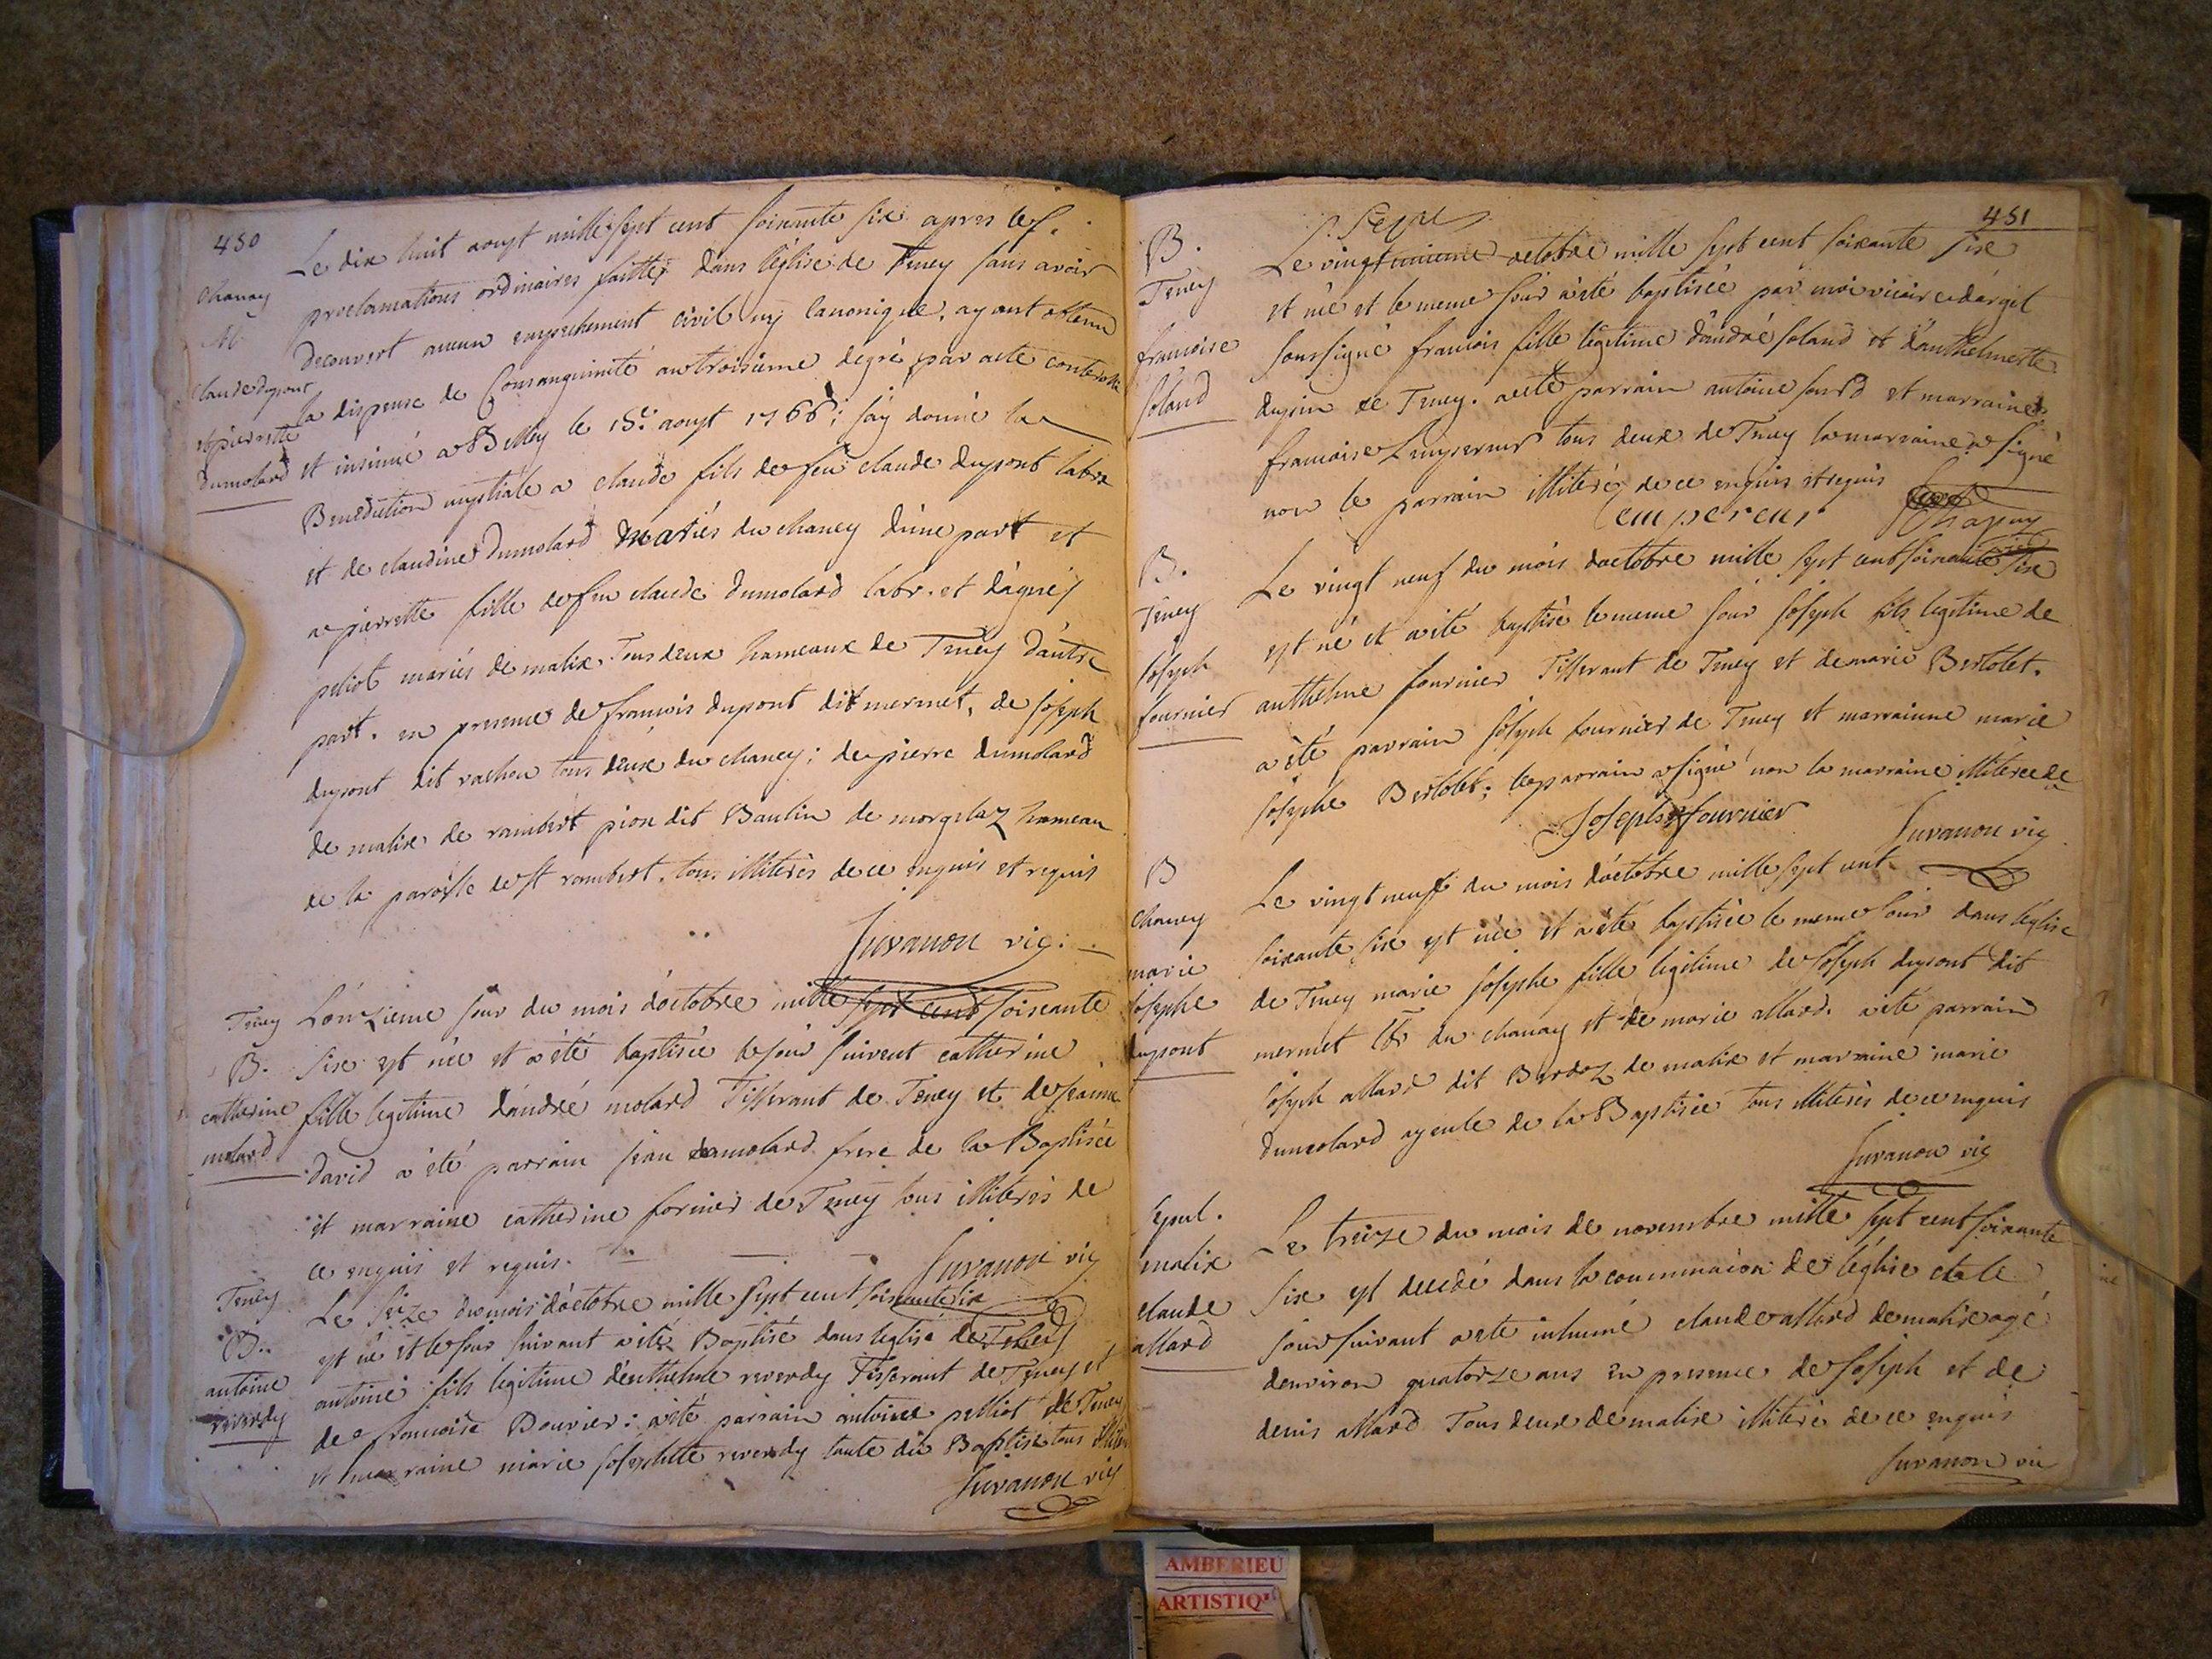 450
Le dix huit aoust mille sept cent soixante six apres les
chanay
proclamations ordinaires faittes dans l'église de Teney sans avoir
M.
decouvert aucun empechement civil ny canonique, ayant obtenu
claude dupont
la dispense de Consanguinité au troisieme degré par acte controllé
et pierrette
dumolard
et insinué a Belley le 18e aoust 1766; j'ay donné la
Benediction nuptiale a claude fils de feu claude dupont labr
et de claudine dumolard mariés du chaney d'une part et
a pierrette fille de feu claude dumolard labr. et d'agnes
peliot mariés de malix Tous deux hameaux de Teney d'autre
part. en presence de francois dupont dit mermet, de joseph
dupont dit vachou tous deux du chaney; de pierre dumolard
de malix de rambert pion dit Baulin de morgelaz hameau
de la paroisse de st rambert. tous illiterés de ce enquis et requis
Juvanon vic.
Teney
L'onzieme jour du mois d'octobre mille sept cent soixante
B.
six est née et a été baptisée le jour suivent catherine
catherine
fille legitime d'andré molard Tisserant de Teney et de jeanne
molard
david a été parrain jean molard frere de la Baptisée
et marraine catherine fornier de Teney tous illiterés de
ce enquis et requis.
Juvanon vic
Teney
Le seize du mois d'octobre mille sept cent soixante six
B.
est né et le jour suivant a été Baptisé dans l'eglise de Teney
antoine
antoine fils legitime d'enthelme reverdy Tisserant de Teney et
reverdy
de francoise Bouvier: a été parrain antoine pelliot de Teney
et marraine marie josephtte reverdy tante du Baptisé tous illiter
Juvanon vic
451
B.
Le vingt octobre mille sept cent soixante six
Teney
et né et le meme jour a été baptisée par moi vicaire d'argit
francoise
soussigné francois fille legitime d'andré soland et d'anthelmette
soland
dupin de Teney. a eté parrain antoine jourd et marraine
francoise Lempereur tous deux de Teney la marraine a signé
non le parrain illiteré de ce enquis et requis
Lempereur Chapuy
B.
Le vingt neuf du mois d'octobre mille sept cent soixante six
Teney
est né et a été baptisé le meme jour joseph fils legitime de
joseph
fournier
anthelme fournier Tisserant de Teney et de marie Bertolet.
a été parrain joseph fournier de Teney et marrainne marie
josephe Bertolet; le parrain a signé non la marraine illiteree de
Joseph fournier Juvanon vic
B
Le vingt neuf du mois d'octobre mille sept cent
chaney
soixante six est née et a été baptisée le meme jour dans l'église
marie
josephe
de Teney marie josephe fille legitime de joseph dupont dit
dupont
mermet du chanay et de marie allard. a été parrain
joseph allard dit Berdoz de malix et marraine marie
dumolard ayeule de la Baptisée tous illiterés de ce enquis
Juvanon vic
sepul.
Le treize du mois de novembre mille sept cent soixante
malix
six est decedé dans la communion de l'église et le
claude
jour suivant a ete inhumé claude allard de malix agé
allard
d'environ quatorze ans en presence de joseph et de
denis allard Tous deux de malix illiteré de ce enquis
Juvanon vic
AMBERIEU
ARTISTIQ